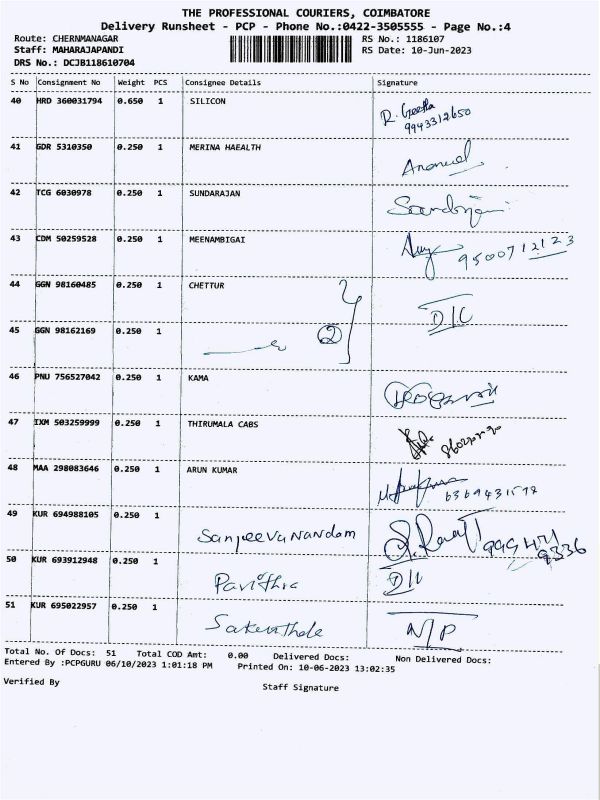 THE PROFESSIONAL COURIERS, COIMBATORE
Delivery Runsheet - PCP - Phone No.:0422-3505555 - Page No.:4
Route: CHERNMANAGAR RS No.: 1186107
Staff: MAHARAJAPANDI RS Date: 10-Jun-2023
DRS No.: DCJB118610704
S No Consignment No Weight PCS Consignee Details Signature
40 HRD 360031794 0.650 1 SILICON R. Geetha
9943312650
41 GDR 5310350 0.250 1 MERINA HAEALTH
42 TCG 6030978 0.250 1 SUNDARAJAN
43 CDM 50259528 0.250 1 MEENAMBIGAI 9500712123
44 GGN 98160485 0.250 1 CHETTUR D/C
45 GGN 98162169 0.250 1 2
46 PNU 756527042 0.250 1 KAMA
47 IXM 503259999 0.250 1 THIRUMALA CABS
48 MAA 298083646 0.250 1 ARUN KUMAR
49 KUR 694988105 0.250 1 Sanjeevanandam
50 KUR 693912948 0.250 1 Pavithra
51 KUR 695022957 0.250 1 N/P
Total No. Of Docs: 51 Total COD Amt: 0.00 Delivered Docs: Non Delivered Docs:
Entered By :PCPGURU 06/10/2023 1:01:18 PM Printed On: 10-06-2023 13:02:35
Verified By Staff Signature